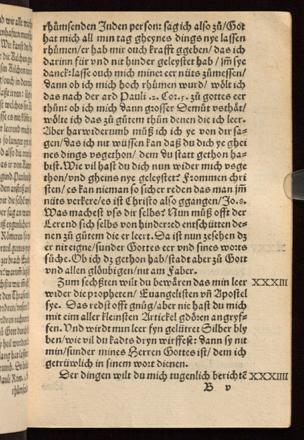 rhůmsenden Juden person: sag ich also zů/ Got
hat mich all min tag gheynes dings nye lassen
rhůmen/ er hab mir ouch krafft ggeben/ das ich
darinn für vnd nit hinder geleystet hab / jm sye
danck: lasse ouch mich miner eer nüts zůmessen/
Dann ob ich mich hoch rhůmen wurd/ wölt ich
das nach der ard Pauli .2. Cor.. zů gottes eer
thůn: ob ich mich dann grosser Demůt vsthät/
wölte ich das zů gůtem thůn denen die ich leer.
Aber harwiderumb můß ich ich ye von dir sa-
gen/ das ich nit wüssen kan daß du dich ye ghei
nes dings vsgethon/ dem du statt gethon ha-
bist. Wie vil hast du dich nun wider mich vsge
thon/ vnd gheins nye geleystet? Frommen chri
sten/ es kan nieman so sicher reden das man jm
nüts verkere/ es ist Christo also ggangen/ Jo.8.
Was machest vss dir selbs? Nun můß offt der
Lerend sich selbs von hindered entschütten de-
nen zů gůtem die er leert. Da ist nun zesehen dz
er nit eigne/ sunder Gottes eer vnd sines worts
sůche. Ob ich dz gethon hab/ stadt aber zů Gott
vnd allen glöubigen/ nit am Faber.
Zum sechßten wilt du bewären das min leer XXXIII
wider die propheten/ Euangelisten vñ Apostel
sye. Das redst offt gnůg/ aber nie hast du mich
mit eim aller kleinsten Artickel gdören angryf-
fen. Vnd wirdt min leer fyn gelütret Silber bly
ben/ wie vil du Fadts dryn wirffest: dann sy nit
min/ sunder mines Herren Gottes ist/ dem ich
getrüwlich in sinem wort dienen.
Der dingen wilt du mich tugenlich berichtẽ XXXIIII
B v